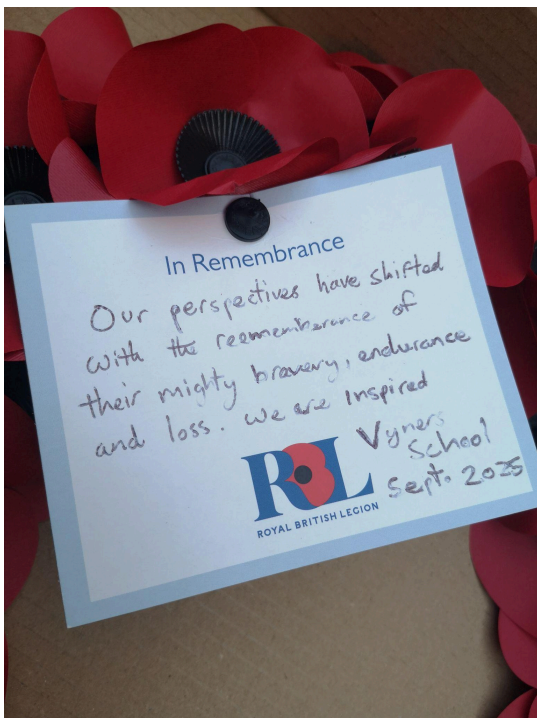 In Remembrance
Our perspectives have shifted
with the reemembrance of
their mighty bravery, endurance
and loss. We are Inspired
Vyners
School
Sept. 2025
RBL
ROYAL BRITISH LEGION